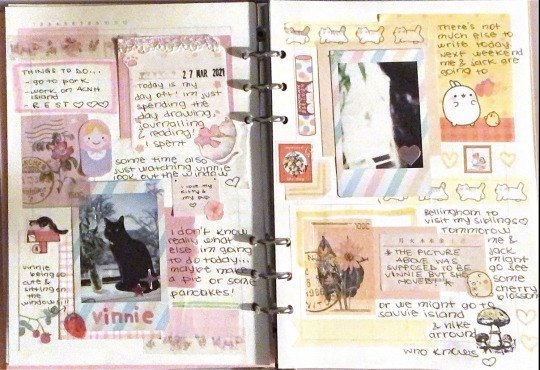 THINGS TO DO...
- go to park
- work on ACNH
island
- R E S T ♡♡♡
27 MAR 2021
Today is my
day off! im just
spending the
day drawing,
journaling
& reading!
I spent
some time also
just watching vinnie
look out the window
♡
i love my
kitty &
my pup
i don't know
really what
else im going
to do today...
maybe make
a pie or some
pancakes!
vinnie
being so
cute &
sitting on
the
window sill
vinnie
There's not
much else to
write today.
Next weekend
me & jack are
going to
Bellingham to
visit my siblings ♡
Tommorow
me &
jack
might
go see
some
cherry
blossoms
* THE PICTURE
ABOVE WAS
SUPPOSED TO BE
VINNIE BUT SHE
MOVED! *
or we might go to
sauvie island
& hike
arround
who knows